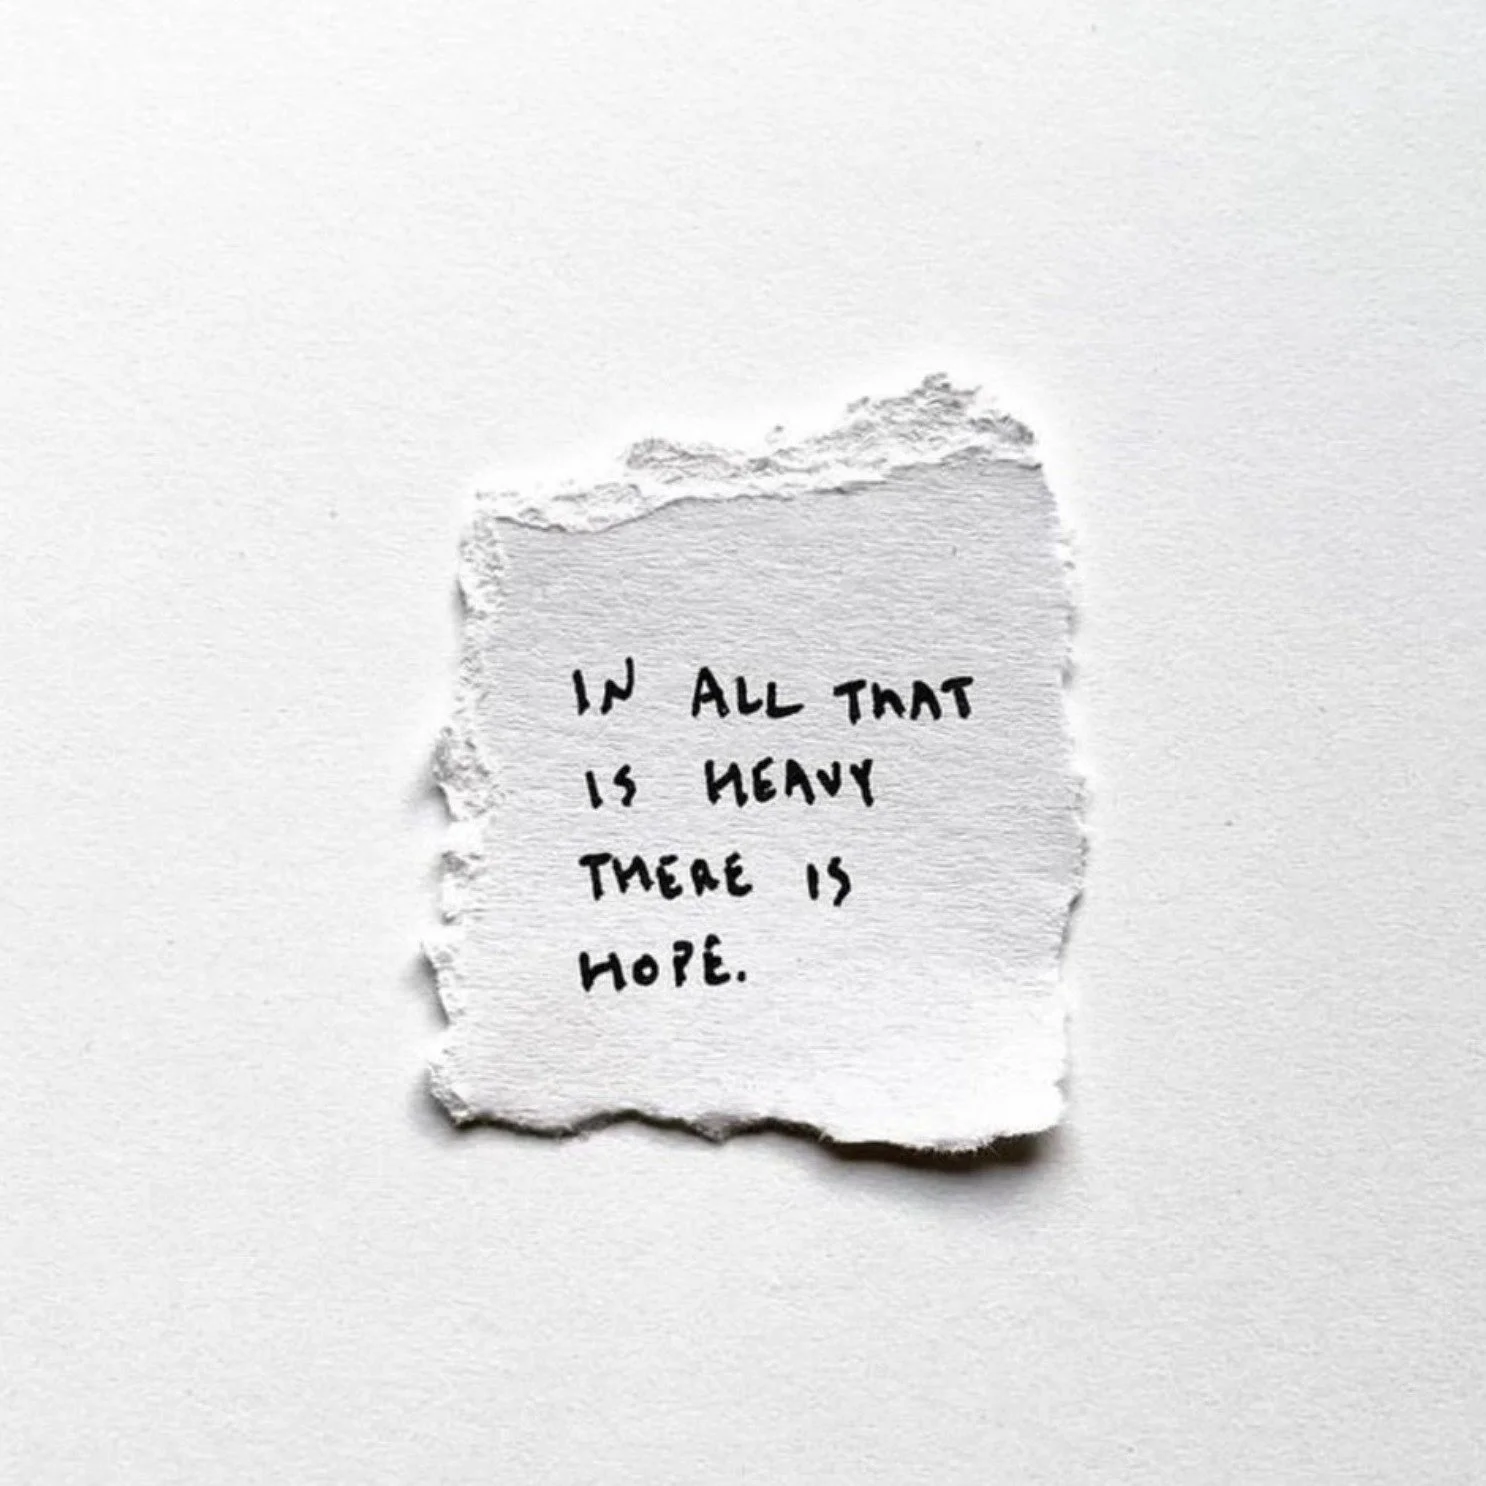 IN ALL THAT
IS HEAVY
THERE IS
HOPE.